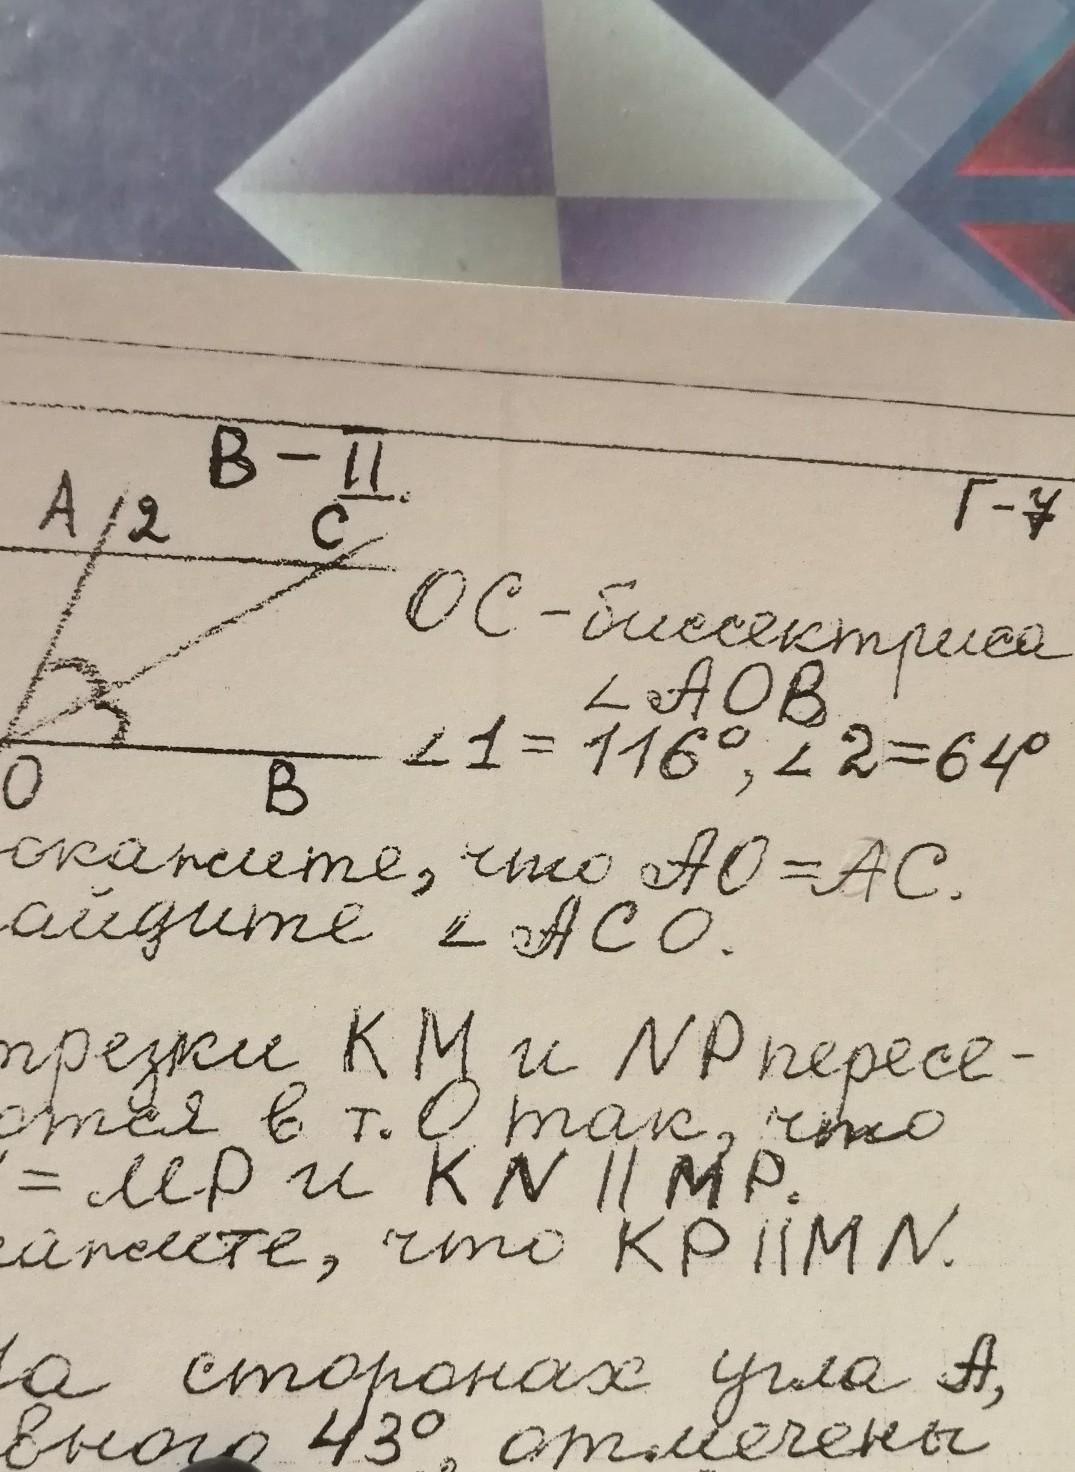 В - II.
Г-7
A 2 C
ОС - биссектриса
∠AOB
∠1 = 116°, ∠2 = 64°
O B
окажите, что AO = AC.
айдите ∠ACO.
трезки KM и NP пересе-
ются в т. O так, что
= MP и KN || MP.
что KP || MN.
а сторонах угла A,
вного 43°, отмечены